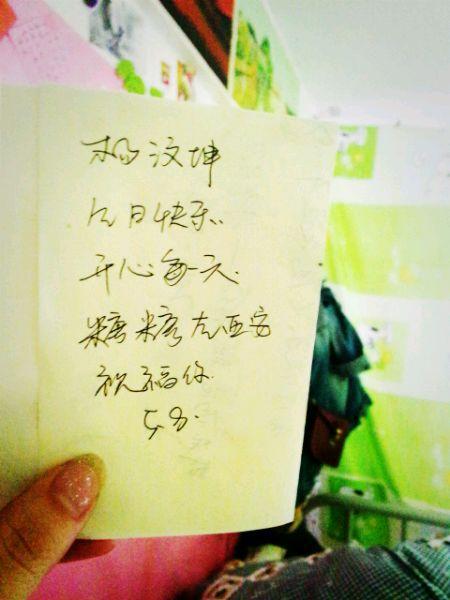 杨汶坤
日快乐..
开心每一天.
糖糖在西安
祝福你.